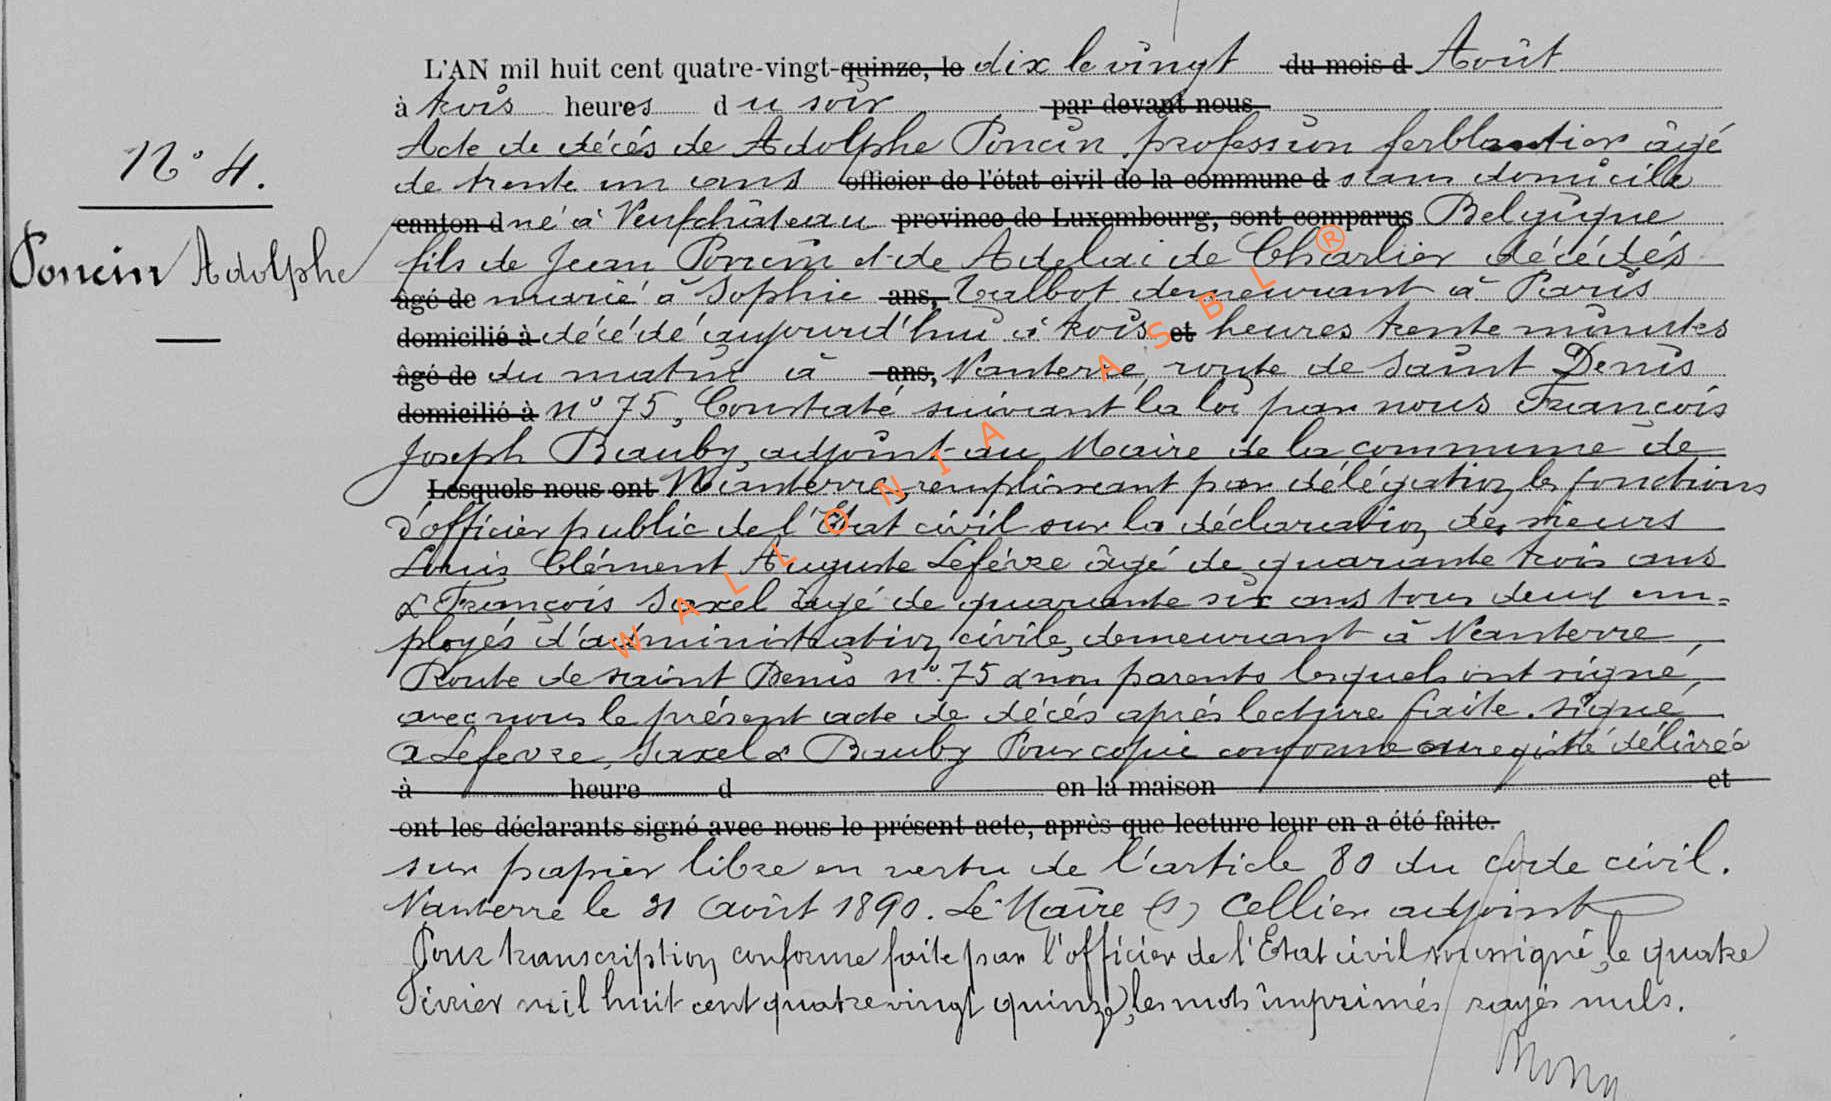 L'AN mil huit cent quatre-vingt-quinze, le dix le vingt du mois d Août
à trois heures du soir par devant nous
N° 4.
Acte de décés de Adolphe Poncin, profession ferblantier âgé
de trente un ans officier de l'état civil de la commune d sans domicile
canton d né à Neufchâteau province de Luxembourg, sont comparus Belgique
Poncin Adolphe
fils de Jean Poncin et de Adelaïde Charlier décédés
âgé de marié à Sophie ans, Talbot demeurant à Paris
domicilié à décédé aujourd'hui à trois et heures trente minutes
âgé de du matin à ans, Nanterre, route de Saint Denis
domicilié à n° 75, Constaté suivant la loi par nous François
Joseph Bauby, adjoint au Maire de la commune de
Lesquels nous ont Nanterre, remplissant par délégation les fonctions
d'officier public de l'Etat civil sur la déclaration des sieurs
Louis Clément Auguste Lefévre âgé de quarante trois ans
& François Saxel âgé de quarante six ans tous deux em=
ployés d'administration civile, demeurant à Nanterre,
Route de saint Denis n°. 75 & non parents lesquels ont signé,
avec nous le présent acte de décés aprés lecture faite. signé
A Lefevre, Saxel & Bauby Pour copie conforme au registre délivrée
à heure d en la maison et
ont les déclarants signé avec nous le présent acte, après que lecture leur en a été faite.
sur papier libre en vertu de l'article 80 du code civil.
Nanterre le 31 août 1890. Le Maire (s) Cellier adjoint
Pour transcription conforme faite par l'officier de l'Etat civil soussigné, le quatre
Février mil huit cent quatre vingt quinze, les mots imprimés rayés nuls.
WALLONIA ASBL ®